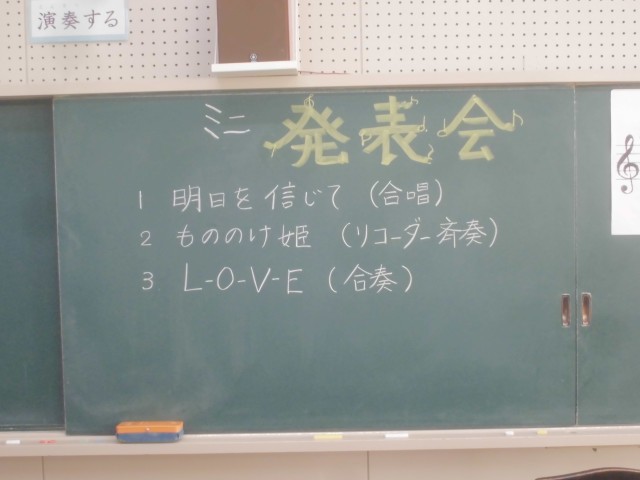 演奏する
ミニ 発表会
1 明日を信じて (合唱)
2 もののけ姫 (リコーダー斉奏)
3 L-O-V-E (合奏)